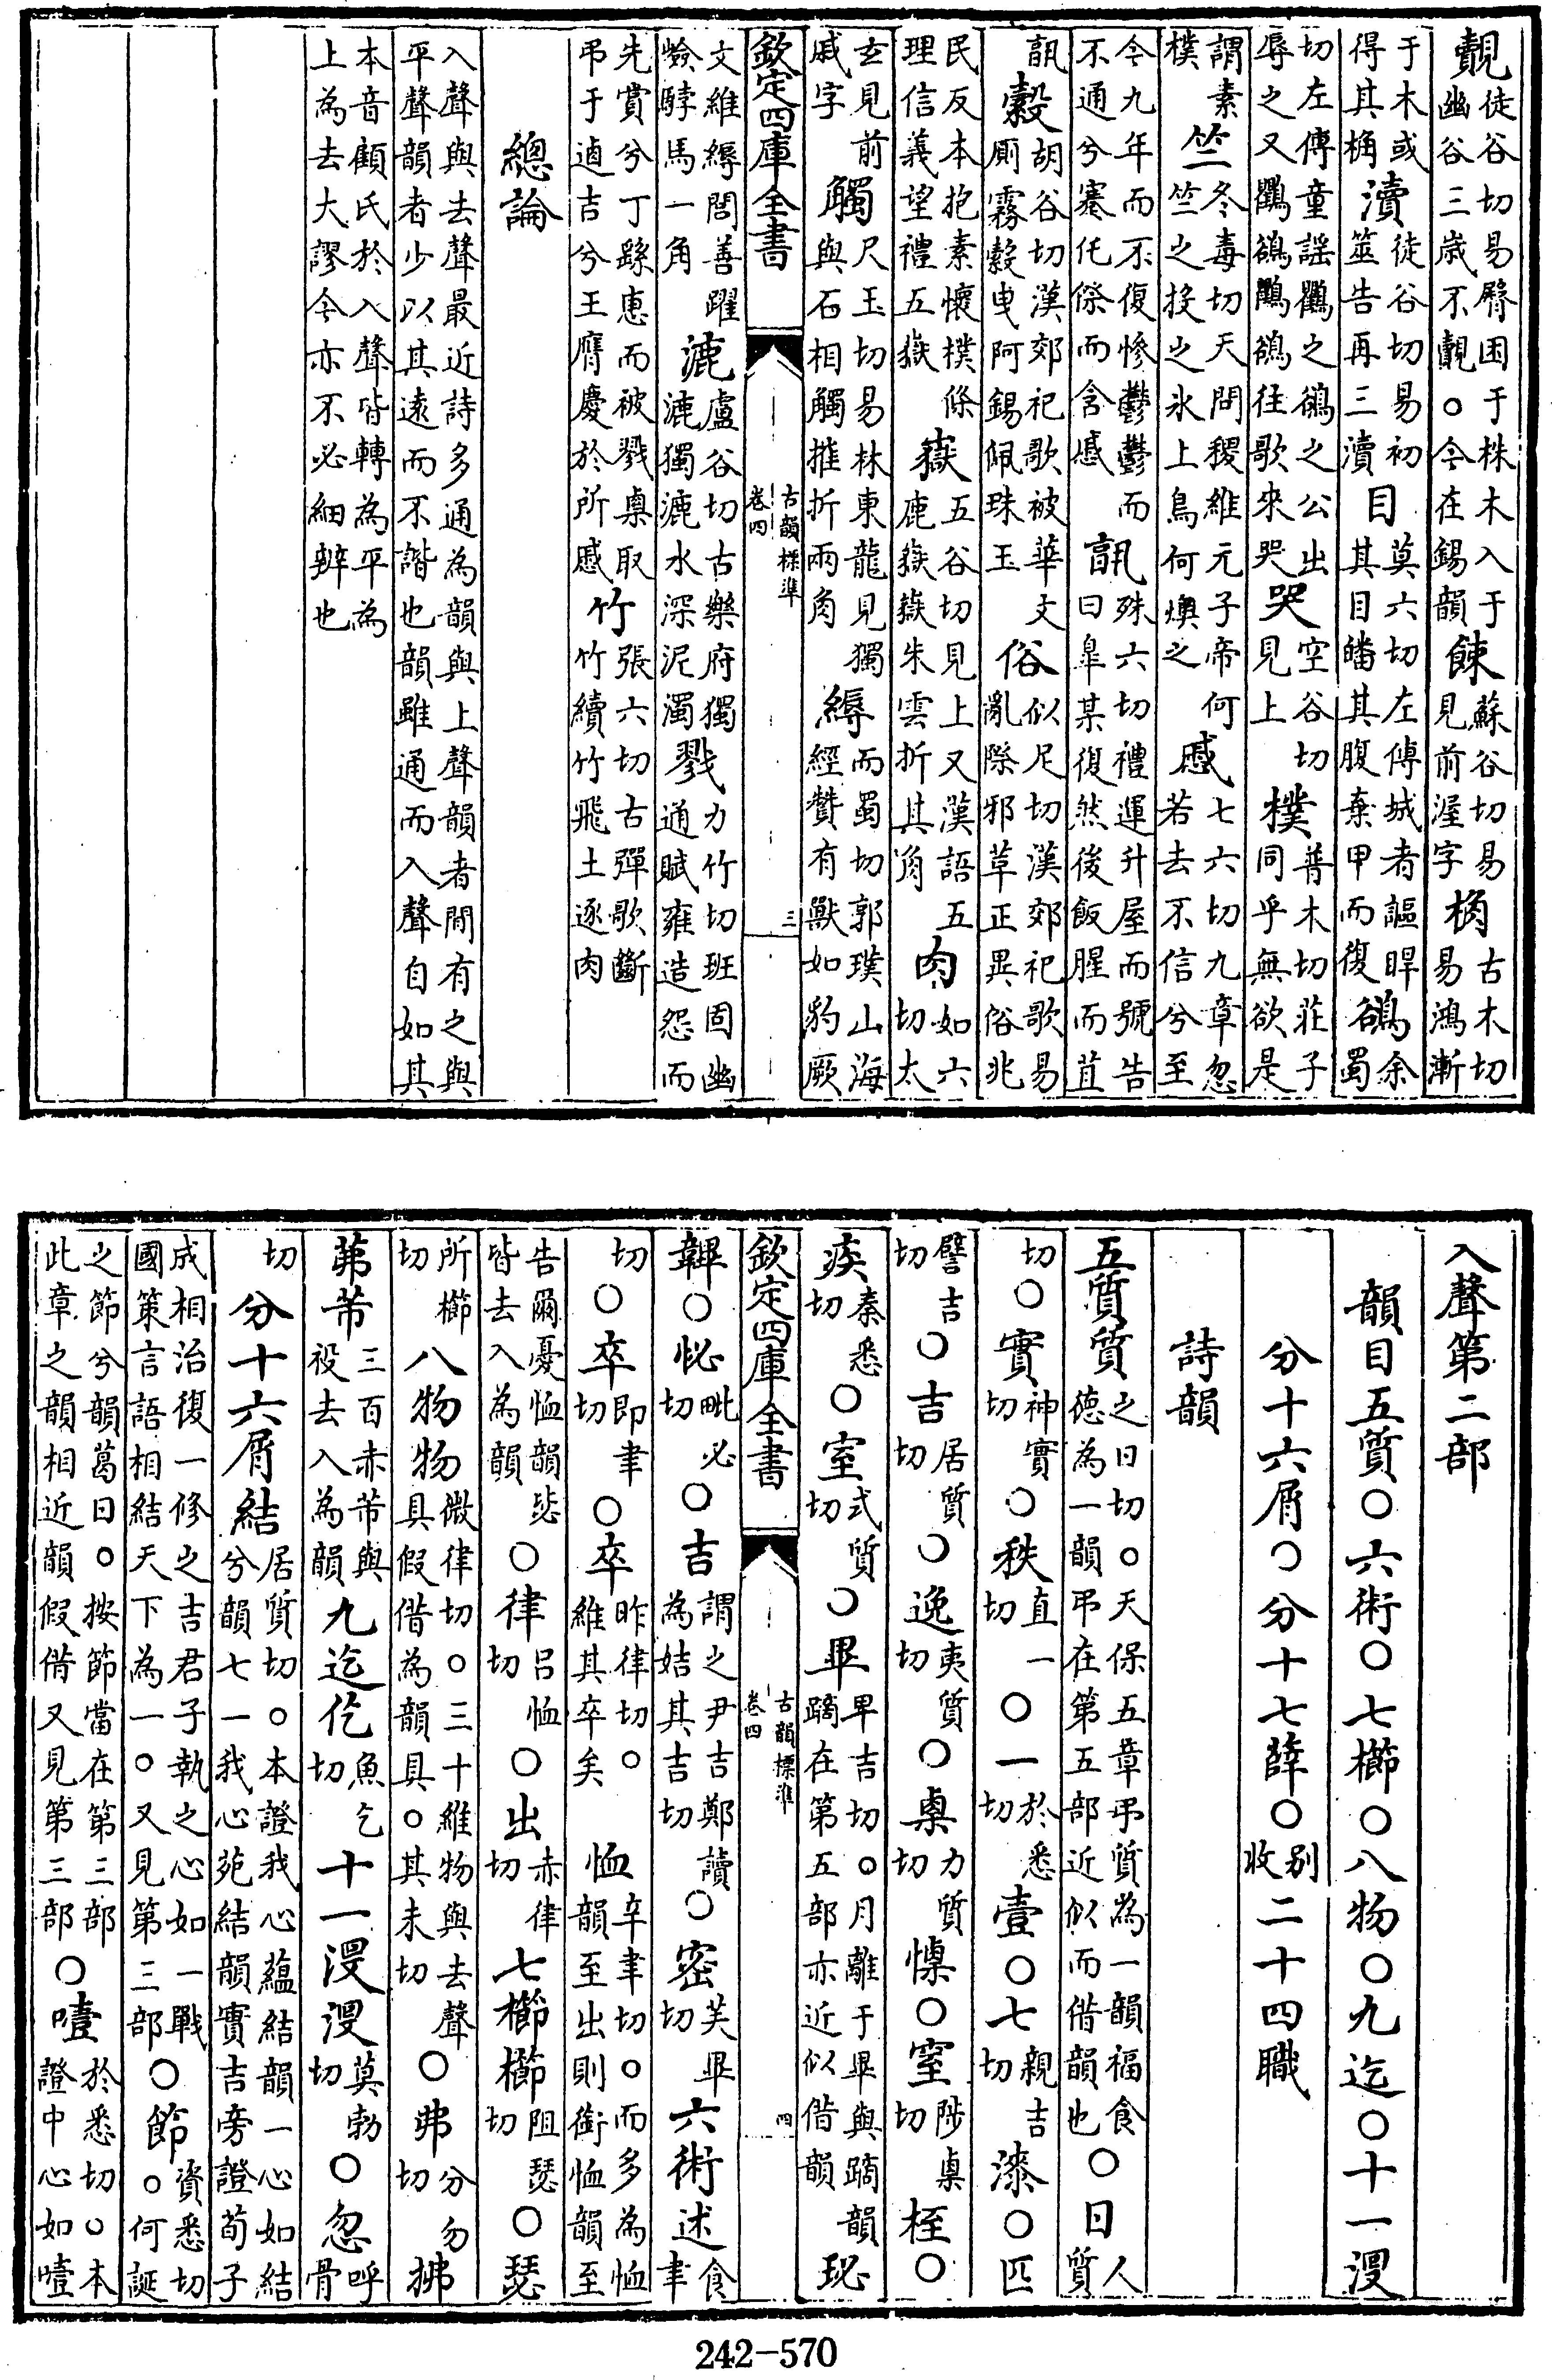 覿徒谷切易臀困于株木入于幽谷三歲不覿○今在錫韻餗蘇谷切易見前渥字桷古木切易鴻漸
于木或得其桷瀆徒谷切易初筮告再三瀆目莫六切左傳城者謳睅其目皤其腹棄甲而復鵒余蜀
切左傳童謡鸜之鵒之公出辱之又鸜鵒鸜鵒往歌來哭哭空谷切見上樸普木切莊子同乎無欲是
謂素樸竺冬毒切天問稷維元子帝何竺之投之氷上鳥何燠之慼七六切九章忽若去不信兮至
今九年而不復慘鬱鬱而不通兮蹇侘傺而含慼孰殊六切禮運升屋而號告曰臯某復然後飯腥而苴
孰縠胡谷切漢郊祀歌被華文厠霧縠曳阿錫佩珠玉俗似足切漢郊祀歌易亂除邪革正異俗兆
民反本抱素懷樸條理信義望禮五嶽嶽五谷切見上又漢語五鹿嶽嶽朱雲折其角肉如六切太
玄見前慼字觸尺玉切易林東龍見獨與石相觸摧折兩角縟而蜀切郭璞山海經贊有獸如豹厥
欽定四庫全書
古韻標準
卷四
三
文維縟閭善躍嶮駮馬一角漉盧谷切古樂府獨漉獨漉水深泥濁戮力竹切班固幽通賦雍造怨而
先賞兮丁繇惠而被戮㮚取弔于逌吉兮王膺慶於所慼竹張六切古彈歌斷竹續竹飛土逐肉
總論
入聲與去聲最近詩多通為韻與上聲韻者間有之與平聲韻者少以其逺而不諧也韻雖通而入聲自如其
本音顧氏於入聲皆轉為平為上為去大謬今亦不必細辨也
入聲第二部
韻目五質○六術○七櫛○八物○九迄○十一沒
分十六屑○分十七薛○別收二十四職
詩韻
五質質之日切○天保五章弔質為一韻福食德為一韻弔在第五部近似而借韻也○日人質
切○實神實切○秩直一切○一於悉切壹○七親吉切漆○匹
譬吉切○吉居質切○逸夷質切○㮚力質切慄○窒陟㮚切桎○
疾秦悉切○室式質切○畢卑吉切○月離于畢與蹢韻蹢在第五部亦近似借韻珌
欽定四庫全書
古韻標準
卷四
四
韠○怭毗必切○吉謂之尹吉鄭讀為姞其吉切○密芺畢切六術述食聿
切○卒即聿切○卒昨律切○維其卒矣恤辛聿切○而多為恤韻至出則銜恤韻至
告爾憂恤韻毖皆去入為韻○律呂恤切○出赤律切七櫛櫛阻瑟切○瑟
所櫛切八物物微律切○三十維物與去聲具假借為韻具○其未切○弗分勿切拂
茀芾三百赤芾與祋去入為韻九迄仡魚乞切十一沒沒莫勃切○忽呼骨
切分十六屑結居質切○本證我心蘊結韻一心如結兮韻七一我心苑結韻實吉旁證荀子
成相治復一修之吉君子執之心如一戰國策言語相結天下為一○又見第三部○節資悉切○何誕
之節兮韻葛日○按節當在第三部此章之韻相近韻假借又見第三部○噎於悉切○本證中心如噎
242-570